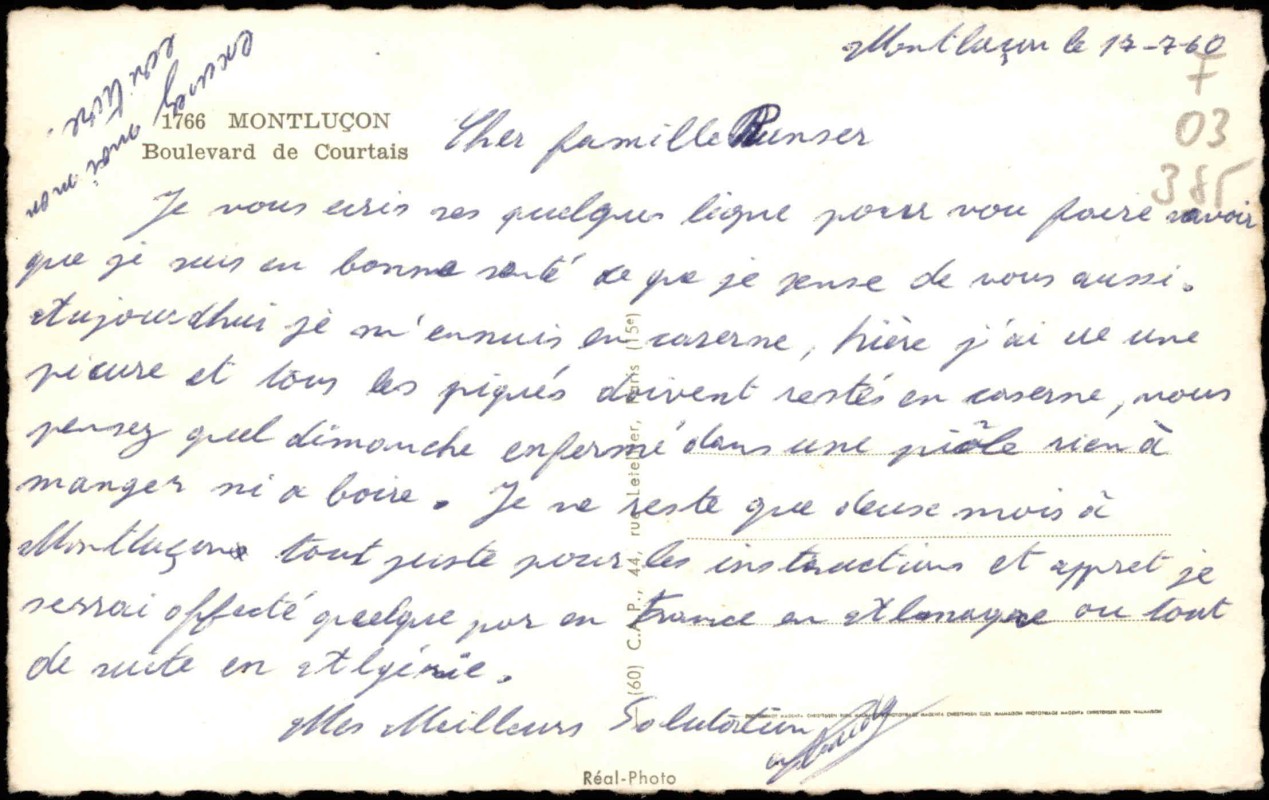 Montluçon le 17-7-60
7
03
385
excusez mon
écriture.
1766 MONTLUÇON
Boulevard de Courtais
Cher famille Runser
Je vous ecris ses quelques ligne pour vou faire savoir
que je suis en bonne santé ce que je pense de vous aussi.
Aujourdhui je m'ennuis en caserne, hière j'ai ue une
picure et tous les piqués doivent restés en caserne, vous
pensez quel dimanche enfermé dans une piôle rien à
manger ni a boire. Je ne reste que deux mois à
Montluçon tout juste pour les instructions et appret je
serrai affecté quelque par en France en Almagne ou tout
de suite en Algérie.
Mes Meilleurs Salutation
(60) C.A.P., 44, rue Letellier, Paris (15e)
Réal-Photo